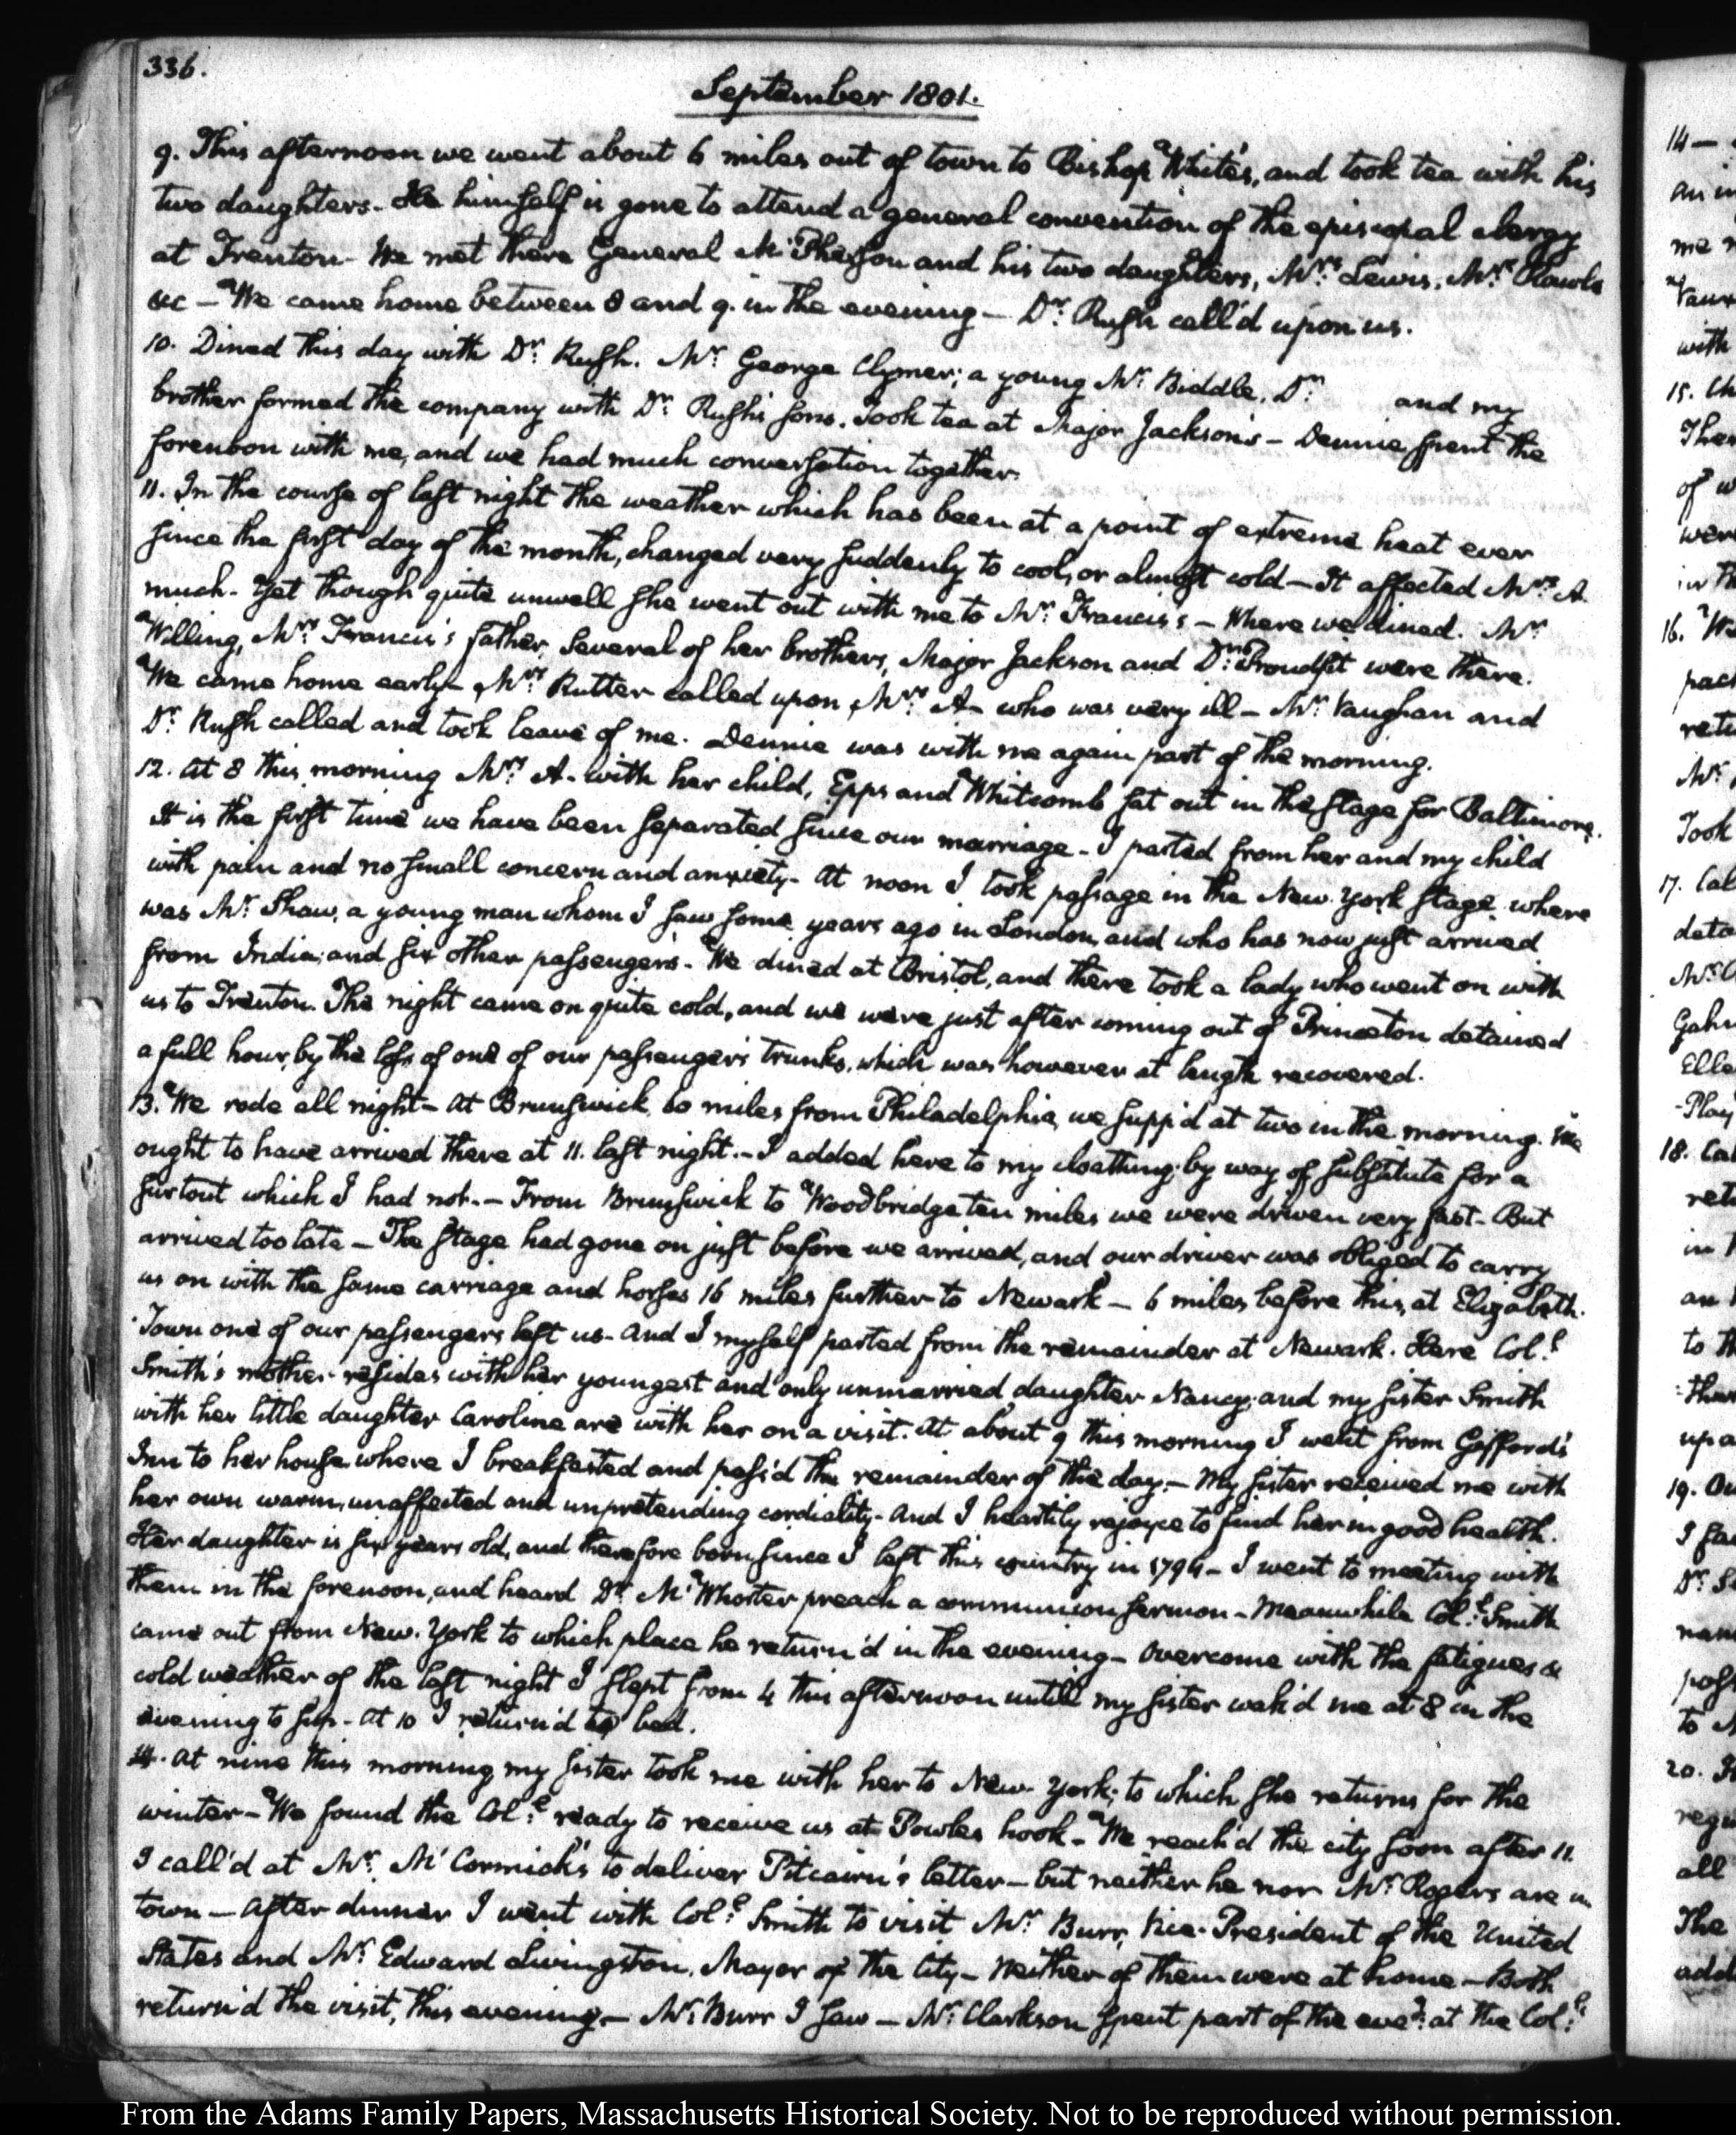 336.
September 1801.
9. This afternoon we went about 6 miles out of town to Bishop White's, and took tea with his
two daughters. He himself is gone to attend a general convention of the episcopal clergy
at Trenton - We met there General McPherson and his two daughters, Mrs. Lewis, Mrs. Rawle
&c - We came home between 8 and 9. in the evening - Dr. Rush call'd upon us.
10. Dined this day with Dr. Rush. Mr. George Clymer; a young Mr. Biddle, Dr. and my
brother formed the company with Dr. Rush's sons. Took tea at Major Jackson's - Dennie spent the
forenoon with me, and we had much conversation together.
11. In the course of last night the weather which has been at a point of extreme heat ever
since the first day of the month, changed very suddenly to cool, or almost cold - It affected Mrs. A.
much. Yet though quite unwell she went out with me to Mr. Francis's - Where we dined. Mr.
Willing, Mrs. Francis's father, several of her brothers, Major Jackson and Dr. Proudfit were there.
We came home early - Mrs. Rutter called upon Mrs. A - who was very ill - Mr. Vaughan and
Dr. Rush called and took leave of me. Dennie was with me again part of the morning.
12. At 8 this morning Mrs. A. with her child, Epps and Whitcomb sat out in the stage for Baltimore.
It is the first time we have been separated since our marriage - I parted from her and my child
with pain and no small concern and anxiety - At noon I took passage in the New York stage, where
was Mr. Shaw, a young man whom I saw some years ago in London, and who has now just arrived
from India; and six other passengers. We dined at Bristol, and there took a lady who went on with
us to Trenton. The night came on quite cold, and we were just after coming out of Princeton detained
a full hour, by the loss of one of our passenger's trunks, which was however at length recovered.
13. We rode all night - At Brunswick, 60 miles from Philadelphia, we supp'd at two in the morning. We
ought to have arrived there at 11. last night. - I added here to my cloathing by way of substitute for a
surtout which I had not. - From Brunswick to Woodbridge ten miles we were driven very fast - But
arrived too late - The stage had gone on just before we arrived, and our driver was obliged to carry
us on with the same carriage and horses 16 miles further to Newark - 6 miles before this, at Elizabeth-
Town one of our passengers left us - And I myself parted from the remainder at Newark. Here Coll.
Smith's mother resides with her youngest and only unmarried daughter Nancy; and my sister Smith
with her little daughter Caroline are with her on a visit. At about 9 this morning I went from Gifford's
Inn to her house, where I breakfasted and pass'd the remainder of the day. - My sister received me with
her own warm, unaffected and unpretending cordiality - And I heartily rejoyce to find her in good health.
Her daughter is six years old, and therefore born since I left this country in 1794 - I went to meeting with
them in the forenoon, and heard Dr. McWhorter preach a communion sermon - Meanwhile Coll. Smith
came out from New-York to which place he return'd in the evening - Overcome with the fatigues &
cold weather of the last night I slept from 4 this afternoon untill my sister wak'd me at 8 in the
evening to sup - At 10 I return'd to bed.
14. At nine this morning my sister took me with her to New-York; to which she returns for the
winter - We found the Coll. ready to receive us at Powles hook - We reach'd the city soon after 11.
I call'd at Mr. McCormick's to deliver Pitcairn's letter - but neither he nor Mr. Rogers are in
town - After dinner I went with Coll. Smith to visit Mr. Burr, Vice-President of the United
States and Mr. Edward Livingston, Mayor of the City - Neither of them were at home - Both
return'd the visit, this evening - Mr. Burr I saw - Mr. Clarkson spent part of the eveg. at the Coll.
From the Adams Family Papers, Massachusetts Historical Society. Not to be reproduced without permission.